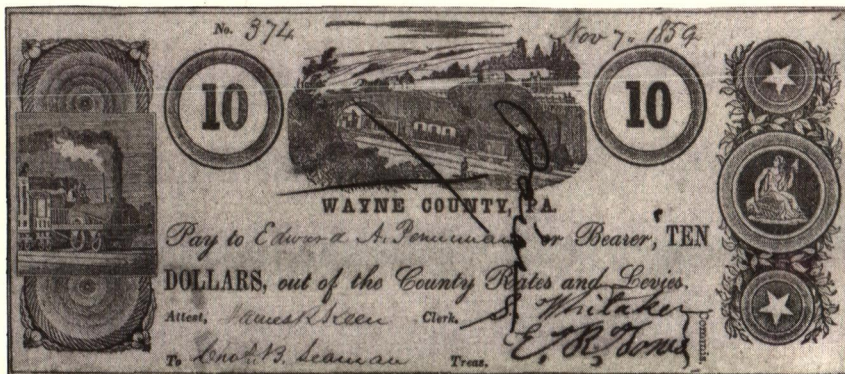 No. 374 Nov 7. 1859
10 10
WAYNE COUNTY, PA.
Pay to Edward A. Penniman or Bearer, TEN
DOLLARS, out of the County Rates and Levies.
Attest, James R Keen Clerk, S. Whitaker
E. R. Jones Commis.
To B. Seaman Treas.